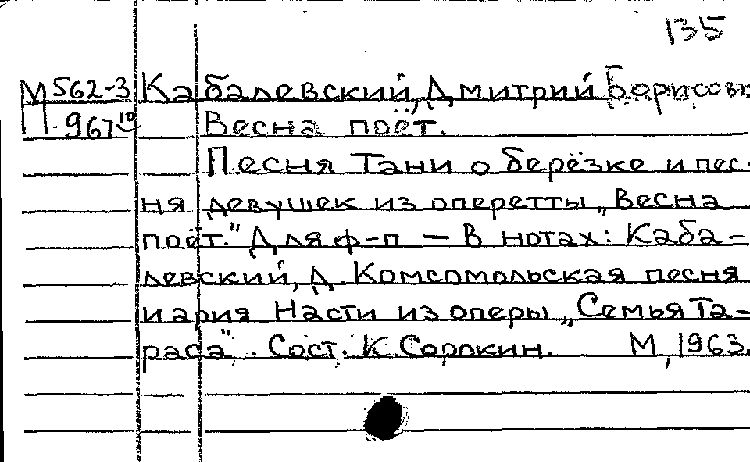 135
М 562-3 Кабалевский, Дмитрий Борисов
П 967 10 Весна поёт.
Песня Тани о берёзке и пес-
ня девушек из оперетты „Весна
поёт." Для ф-п — В нотах: Каба-
левский, Д. Комсомольская песня
и ария Насти из оперы „Семья Та-
раса". Сост. К. Сорокин. М, 1963.